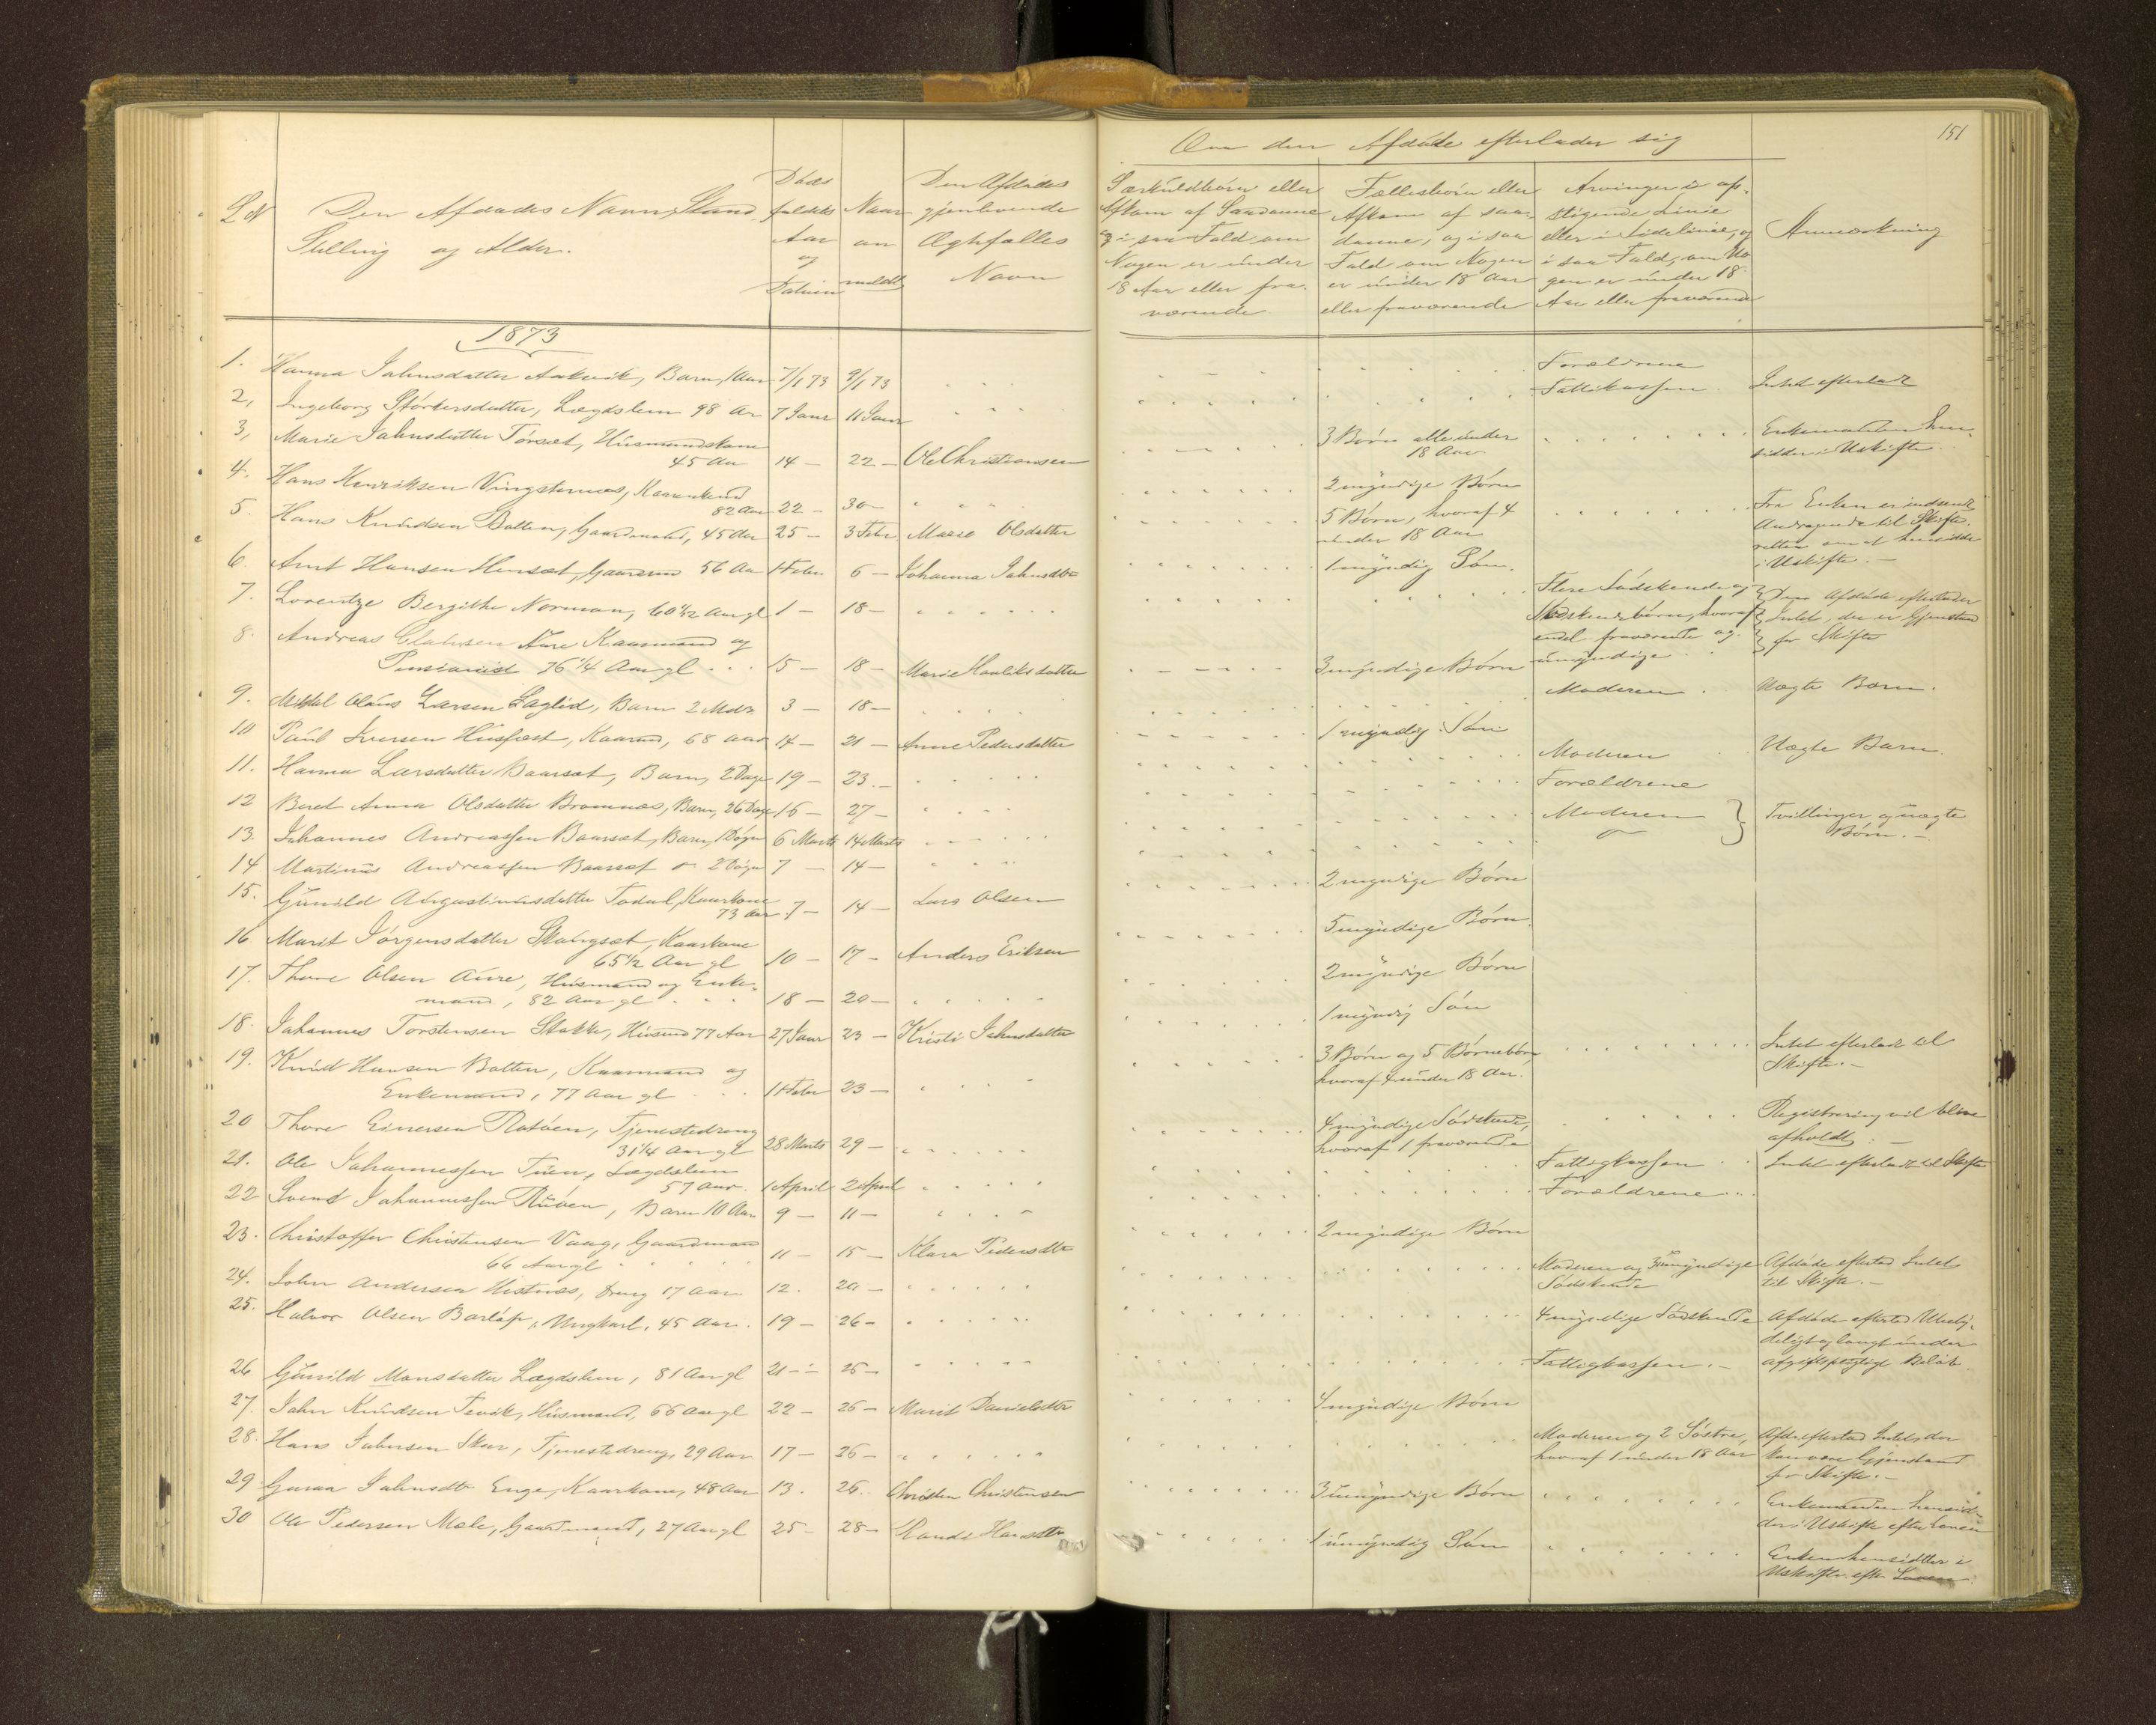 151
Om den Afdøde efterlader sig
L N
Den Afdødes Navn, Stand
Stilling og Alder.
Døds
faldets
Aar
og
Datum
Naar
an
meldt
Den Afdødes
gjenlevende
Ægtefælles
Navn
Særkuldbørn eller
Afkom af Saadanne
og i saa Fald om
Nogen er under
18 Aar eller fra-
værende
Fællesbørn eller
Afkom af saa-
danne, og i saa
Fald om Nogen
er under 18 Aar
eller fraværende
Arvinger i op-
stigende Linie
eller i Sidelinie, og
i saa Fald, om No
gen er under 18
Aar eller fraværende
Anmærkning
1873
1. Hanna Johnsdatter Aakvik, Barn, 1 Aar 7/1 73 9/1 73 Forældrene
2, Ingeborg Størkersdatter, Lægdslem 98 Ar 7 Janr 11 Janr Fattikassen Intet efterladt
3, Marie Johnsdatter Torset, Husmandskone
45 Aar 14 – 22 – Ole Christiansen 3 Børn alle under
18 Aar
Enkemanden hen-
sidder i Uskifte
4. Hans Henriksen Vingsternes, Kaarenkemd
82 Aar 22 – 30 – 2 myndige Børn
5. Hans Knudsen Botten, Gaardmand, 45 Aar 25 – 3 Febr Marie Olsdatter 5 Børn, hvoraf 4
under 18 Aar
Fra Enken er indsendt
Andragende til Skifte-
retten om at hensidde
i Uskifte. –
6. Arnt Hansen Henset, Gaardmd 56 Aar 1 Febr 6 – Johanna Johnsdtr 1 myndig Søn.
7. Lorentze Bergithe Norman, 60 1/2 Aar gl 1 – 18 – Flere Sødskende og
Sødskendebørn, hvoraf
endel fraværende og
umyndige
Den Afdøde efterlader
Intet, der er Gjenstand
for Skifte
8. Andreas Clausen Aure Kaarmand og
Pensionist 76 1/4 Aar gl 15 – 18 – Marie 3 myndige Børn
9. Mikkel Olaus Larsen Laglid, Barn 2 Mdr 3 – 18 – Moderen Uægte Barn.
10 Paul Iversen Husfest, Kaarmd, 68 Aar 14 – 21 – Anne Pedersdatter 1 myndig Søn
11. Hanna Larsdatter Baarset, Barn, 2 Dage 19 – 23. – Moderen Uægte Barn.
12 Beret Anna Olsdatter Bromnes, Barn, 26 Dage 16 – 27 – Forældrene
13. Johannes Andreassen Baarset, Barn, 1 Døgn 6 Marts 14 Marts Moderen Tvillinger og uægte
Børn. –
14 Martinus Andreassen Baarset 2 Døgn 7 – 14 –
15. Gunild Augustinusdatter Todal, Kaarkone
73 Aar 7 – 14 – Lars Olsen 2 myndige Børn
16 Marit Jørgensdatter Skaugset, Kaarkone
65 1/2 Aar gl 10 – 17 – Anders Eriksen 5 myndige Børn.
17. Thore Olsen Aure, Husmand og Enke-
mand, 82 Aar gl 18 – 20 – 2 myndige Børn
18. Johannes Torstensen Stokke, Husmd 77 Aar 27 Janr 23 – Kristi Johnsdatter 1 myndig Søn
19. Knud Hansen Botten, Kaarmand og
Enkemand, 77 Aar gl 11 Febr 23 – 3 Børn og 5 Børnebørn
hvoraf 4 under 18 Aar.
Intet efterladt til
Skifte. –
20 Thore Einersen Rotøen, Tjenestedreng
31 1/4 Aar gl 28 Marts 29 – 4 myndige Sødskende,
hvoraf 1 fraværende
Registrering vil blive
afholdt. –
21. Ole Johannessen Tuen, Lægdslem
57 Aar. 1 April 2 April Fattigkassen Intet efterladt til Skifte
22 Svend Johannessen Ruøen, Barn 10 Aar 9 – 11 – Forældrene
23. Christoffer Christensen Vaag, Gaardmand
66 Aar gl 11 – 15 – Klara Pedersdtr 2 myndige Børn
24. John Andersen Histnes, Dreng 17 Aar 12. 20 – Moderen og 3 umyndige
Sødskende
Afdøde efterlod Intet
til Skifte. –
25. Halvor Olsen Barløp, Ungkarl, 45 Aar. 19 – 26 – 4 myndige Sødskende Afdøde efterlod Ubety-
deligt og langt under
afgiftspligtigt Beløb
26 Gunild Monsdatter Lægdslem, 81 Aar gl 21 – 26 – Fattigkassen. –
27. John Knudsen Tevik, Husmand, 66 Aar gl 22 – 26 – Marit Danielsdtr 4 myndige Børn
28. Hans Johnsen Skar, Tjenestedreng, 29 Aar 17 – 26 – Moderen og 2 Søstre,
hvoraf 1 under 18 Aar
Afd. efterlod Intet, der
kan være Gjenstand
for Skifte. –
29 Guraa Johnsdtr Enge, Kaarkone, 48 Aar 13. 26. Christen Christensen 3 umyndige Børn Enkemanden hensid-
der i Uskifte efter Loven
30 Ole Pedersen Mæle, Gaardmand, 27 Aar gl 25 – 28 – Randi Hansdtr 1 umyndig Søn Enken hensidder i
Uskifte efter Loven